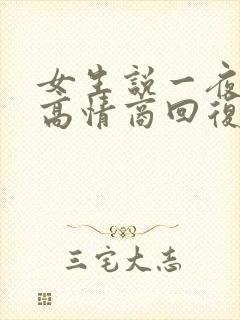 女生說一夜
高情商回復
三宅大志